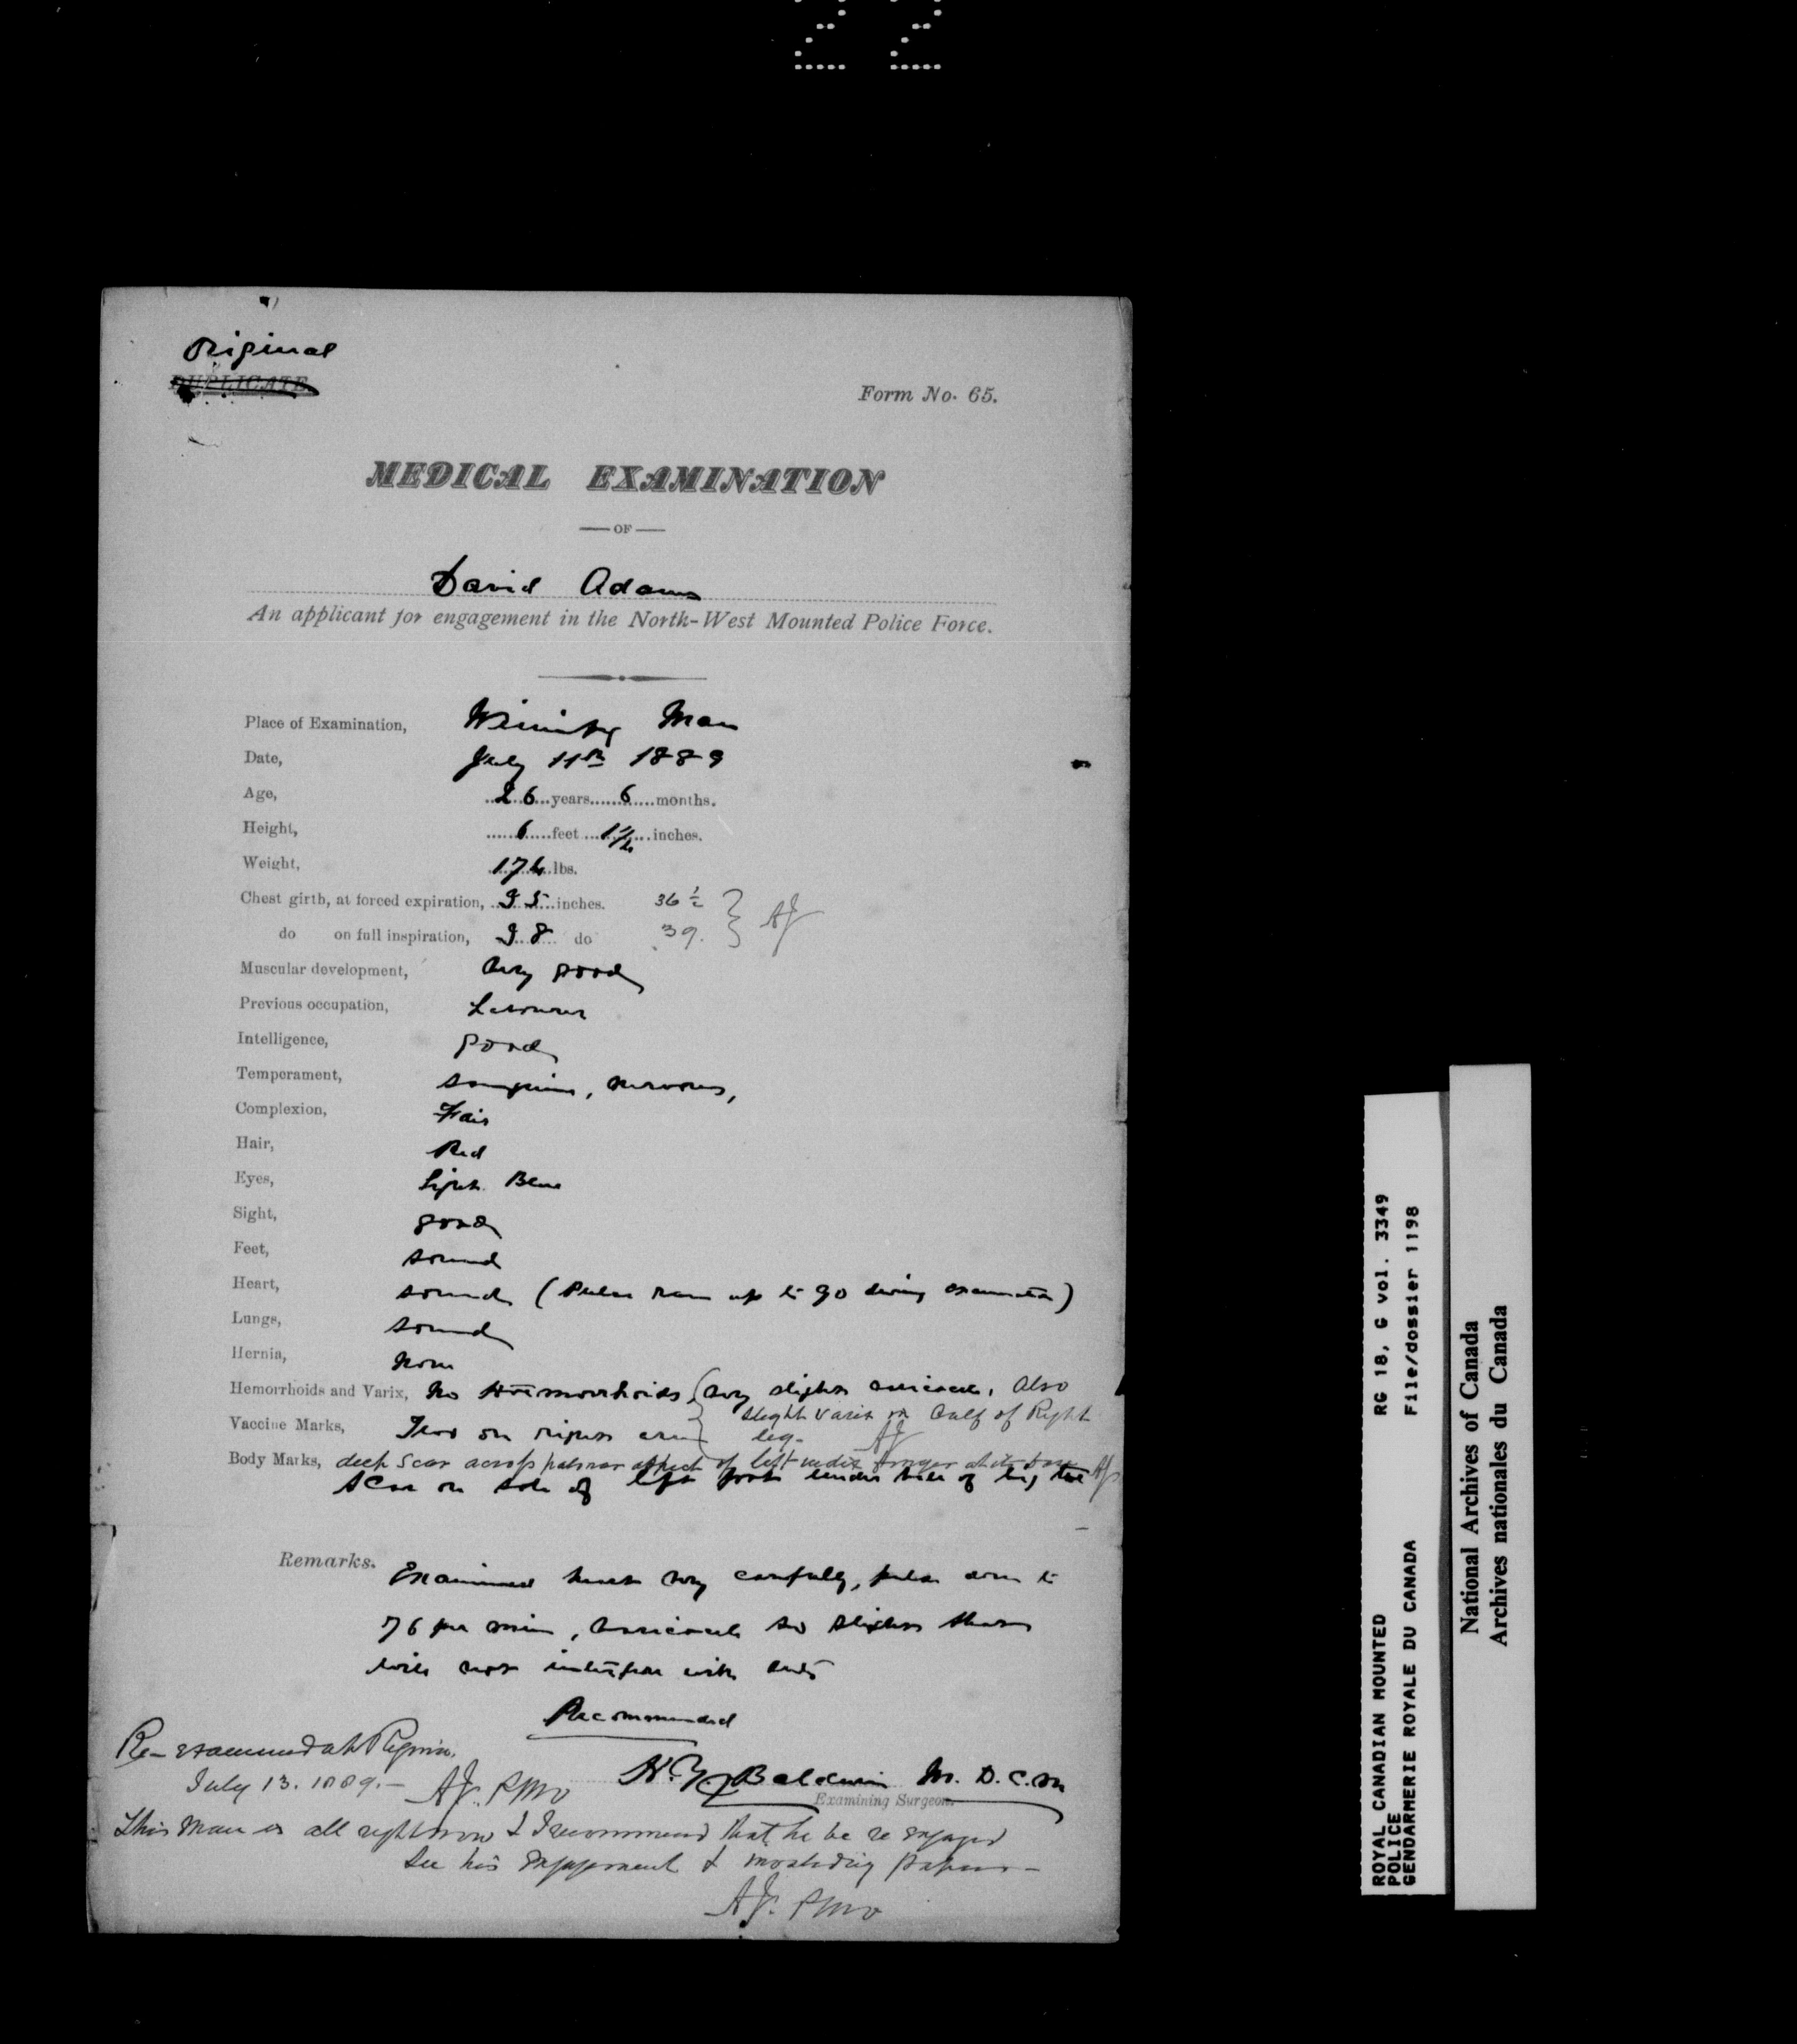 22
Original
DUPLICATE
Form No. 65.
MEDICAL EXAMINATION
— OF —
David Adams
An applicant for engagement in the North-West Mounted Police Force.
Place of Examination, Winnipeg Man
Date, July 11th 1889
Age, 26 years 6 months.
Height, 6 feet 1½ inches.
Weight, 174 lbs.
Chest girth, at forced expiration, 35 inches. 36½
do on full inspiration, 38 do 39. } AJ
Muscular development, Very good
Previous occupation, Labourer
Intelligence, good
Temperament, sanguine, nervous,
Complexion, Fair
Hair, Red
Eyes, Light Blue
Sight, good
Feet, sound
Heart, sound (Pulse ran up to 90 during examination)
Lungs, sound
Hernia, None
Hemorrhoids and Varix, No Hæmorrhoids (very slight varicocele, Also
slight varix on Calf of Right
leg. AJ
Vaccine Marks, Two on right arm
Body Marks, deep scar across palmar aspect of left index finger at its base AJ
Scar on sole of left foot under side of big toe
Remarks. Examined heart very carefully, pulse down to
76 per min, varicocele so slight that
will not interfere with duty
Recommended
H. Y. Baldwin M. D. C. M
Examining Surgeon.
Re-examined at Regina.
July 13. 1889.— AJ. SMO
This man is all right now & I recommend that he be re engaged
See his Engagement & papers —
AJ. SMO
ROYAL CANADIAN MOUNTED
POLICE
GENDARMERIE ROYALE DU CANADA
RG 18, G vol. 3349
File/dossier 1198
National Archives of Canada
Archives nationales du Canada